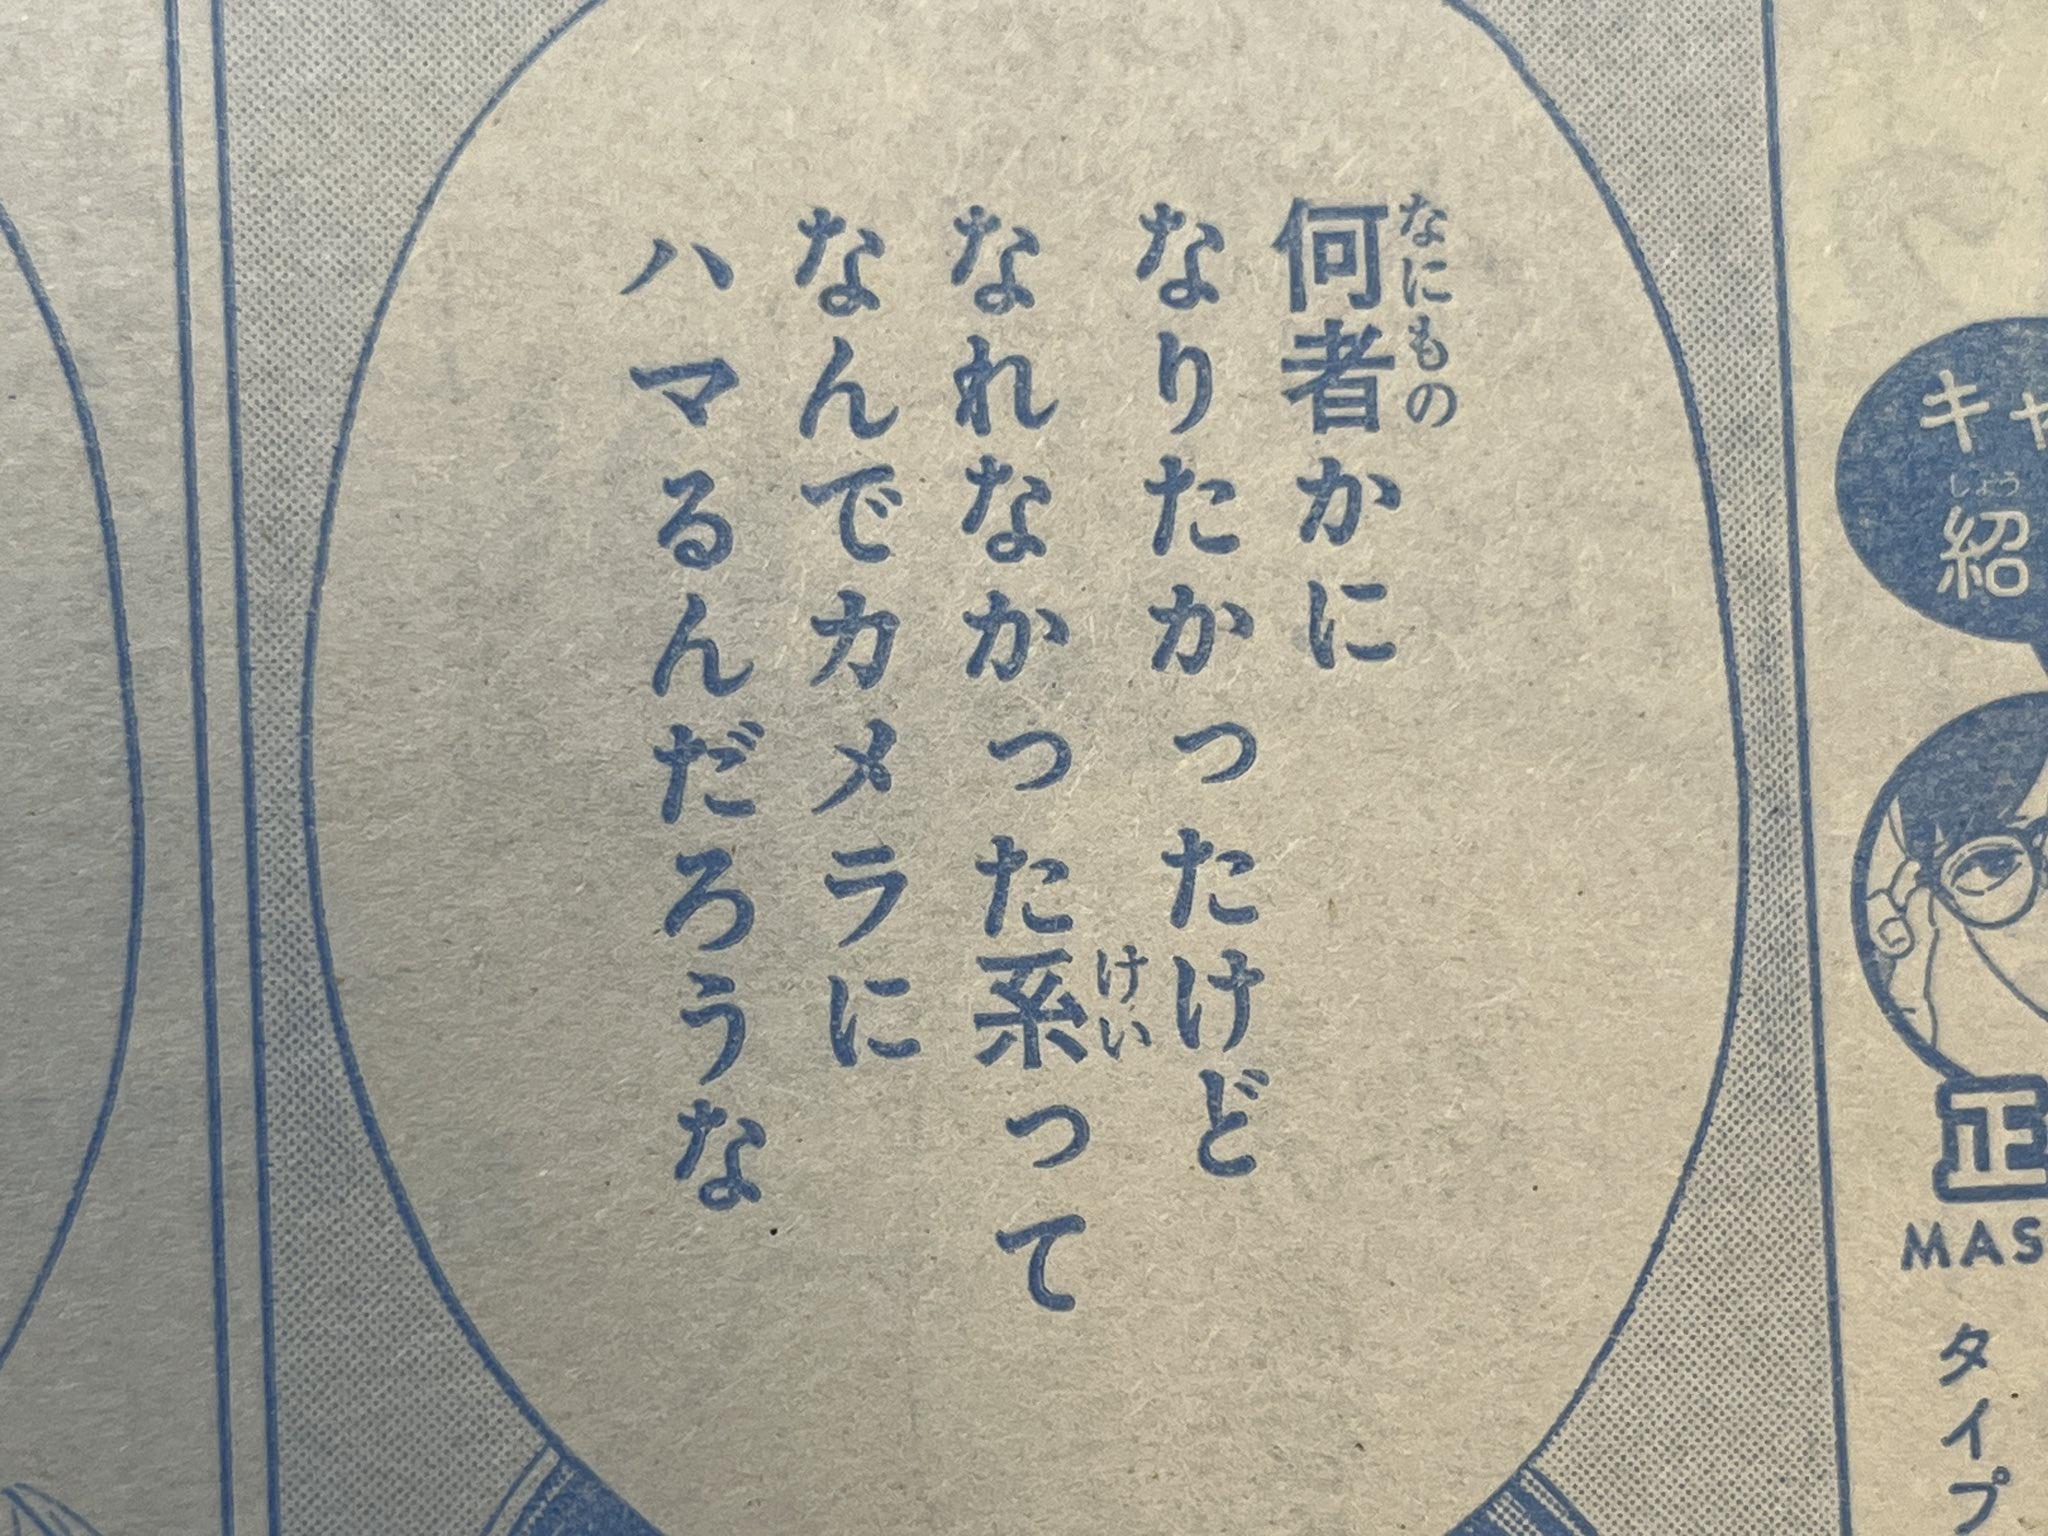 何者かに
なにもの
なりたかったけど
なれなかった系って
けい
なんでカメラに
ハマるんだろうな
キャ
紹
しょう
正
MAS
タイプ